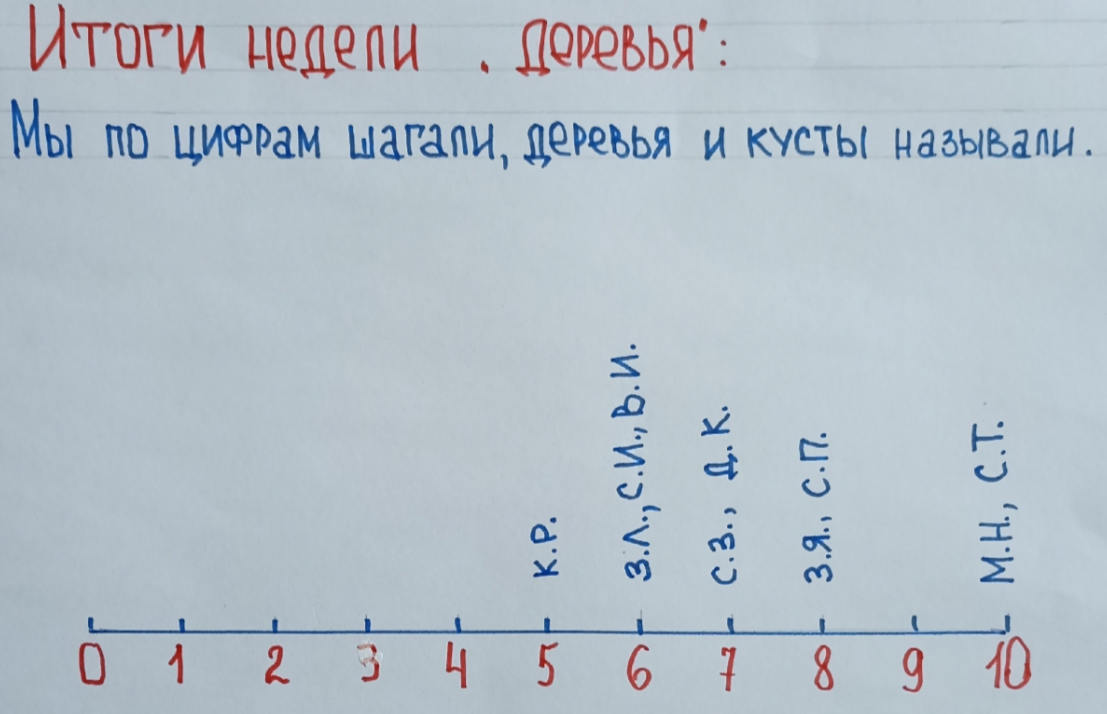 Итоги недели . Деревья":
Мы по цифрам шагали, деревья и кусты называли.
К.Р.
З.Л., С.И., В.И.
С.З., Д.К.
З.Я., С.П.
М.Н., С.Т.
0 1 2 3 4 5 6 7 8 9 10